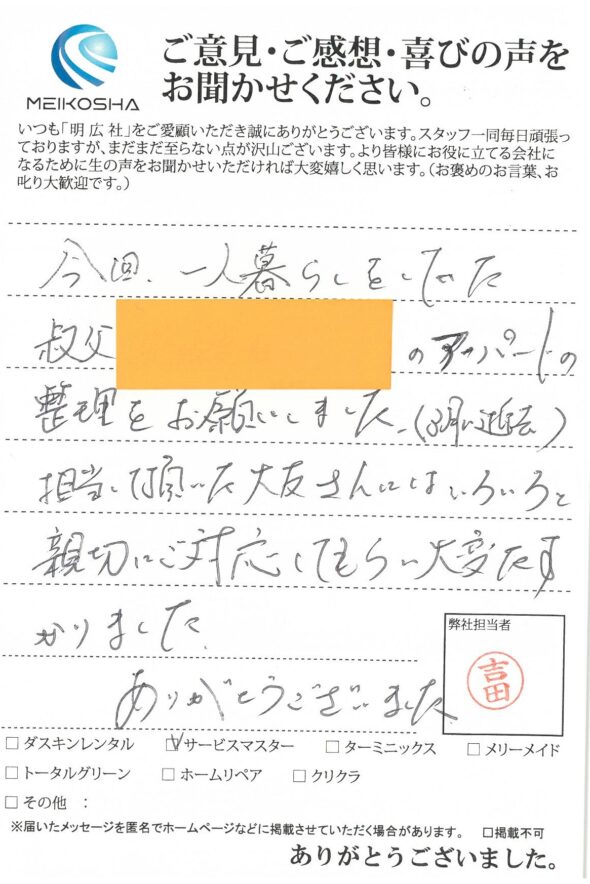 MEIKOSHA
ご意見・ご感想・喜びの声を
お聞かせください。
いつも「明広社」をご愛顧いただき誠にありがとうございます。スタッフ一同毎日頑張っ
ておりますが、まだまだ至らない点が沢山ございます。より皆様にお役に立てる会社に
なるために生の声をお聞かせいただければ大変嬉しく思います。（お褒めのお言葉、お
叱り大歓迎です。）
今回、一人暮らしをしてた
叔父 のアパートの
整理をお願いしました。(3月に逝去)
担当して頂いた大友さんにはいろいろと
親切にご対応してもらい大変たす
かりました。
ありがとうございました
弊社担当者
吉田
□ダスキンレンタル ☑サービスマスター □ターミニックス □メリーメイド
□トータルグリーン □ホームリペア □クリクラ
□その他 ：
※届いたメッセージを匿名でホームページなどに掲載させていただく場合があります。 □掲載不可
ありがとうございました。